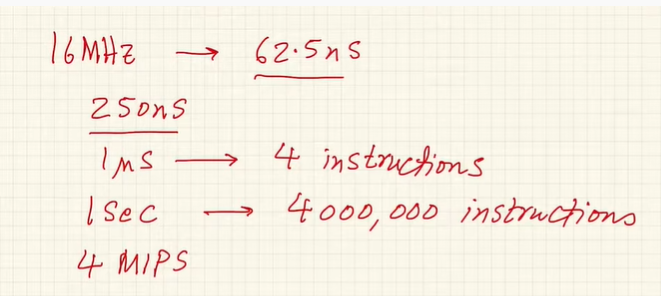 16MHz → 62.5ns
250ns
1μs → 4 instructions
1 Sec → 4000,000 instructions
4 MIPS